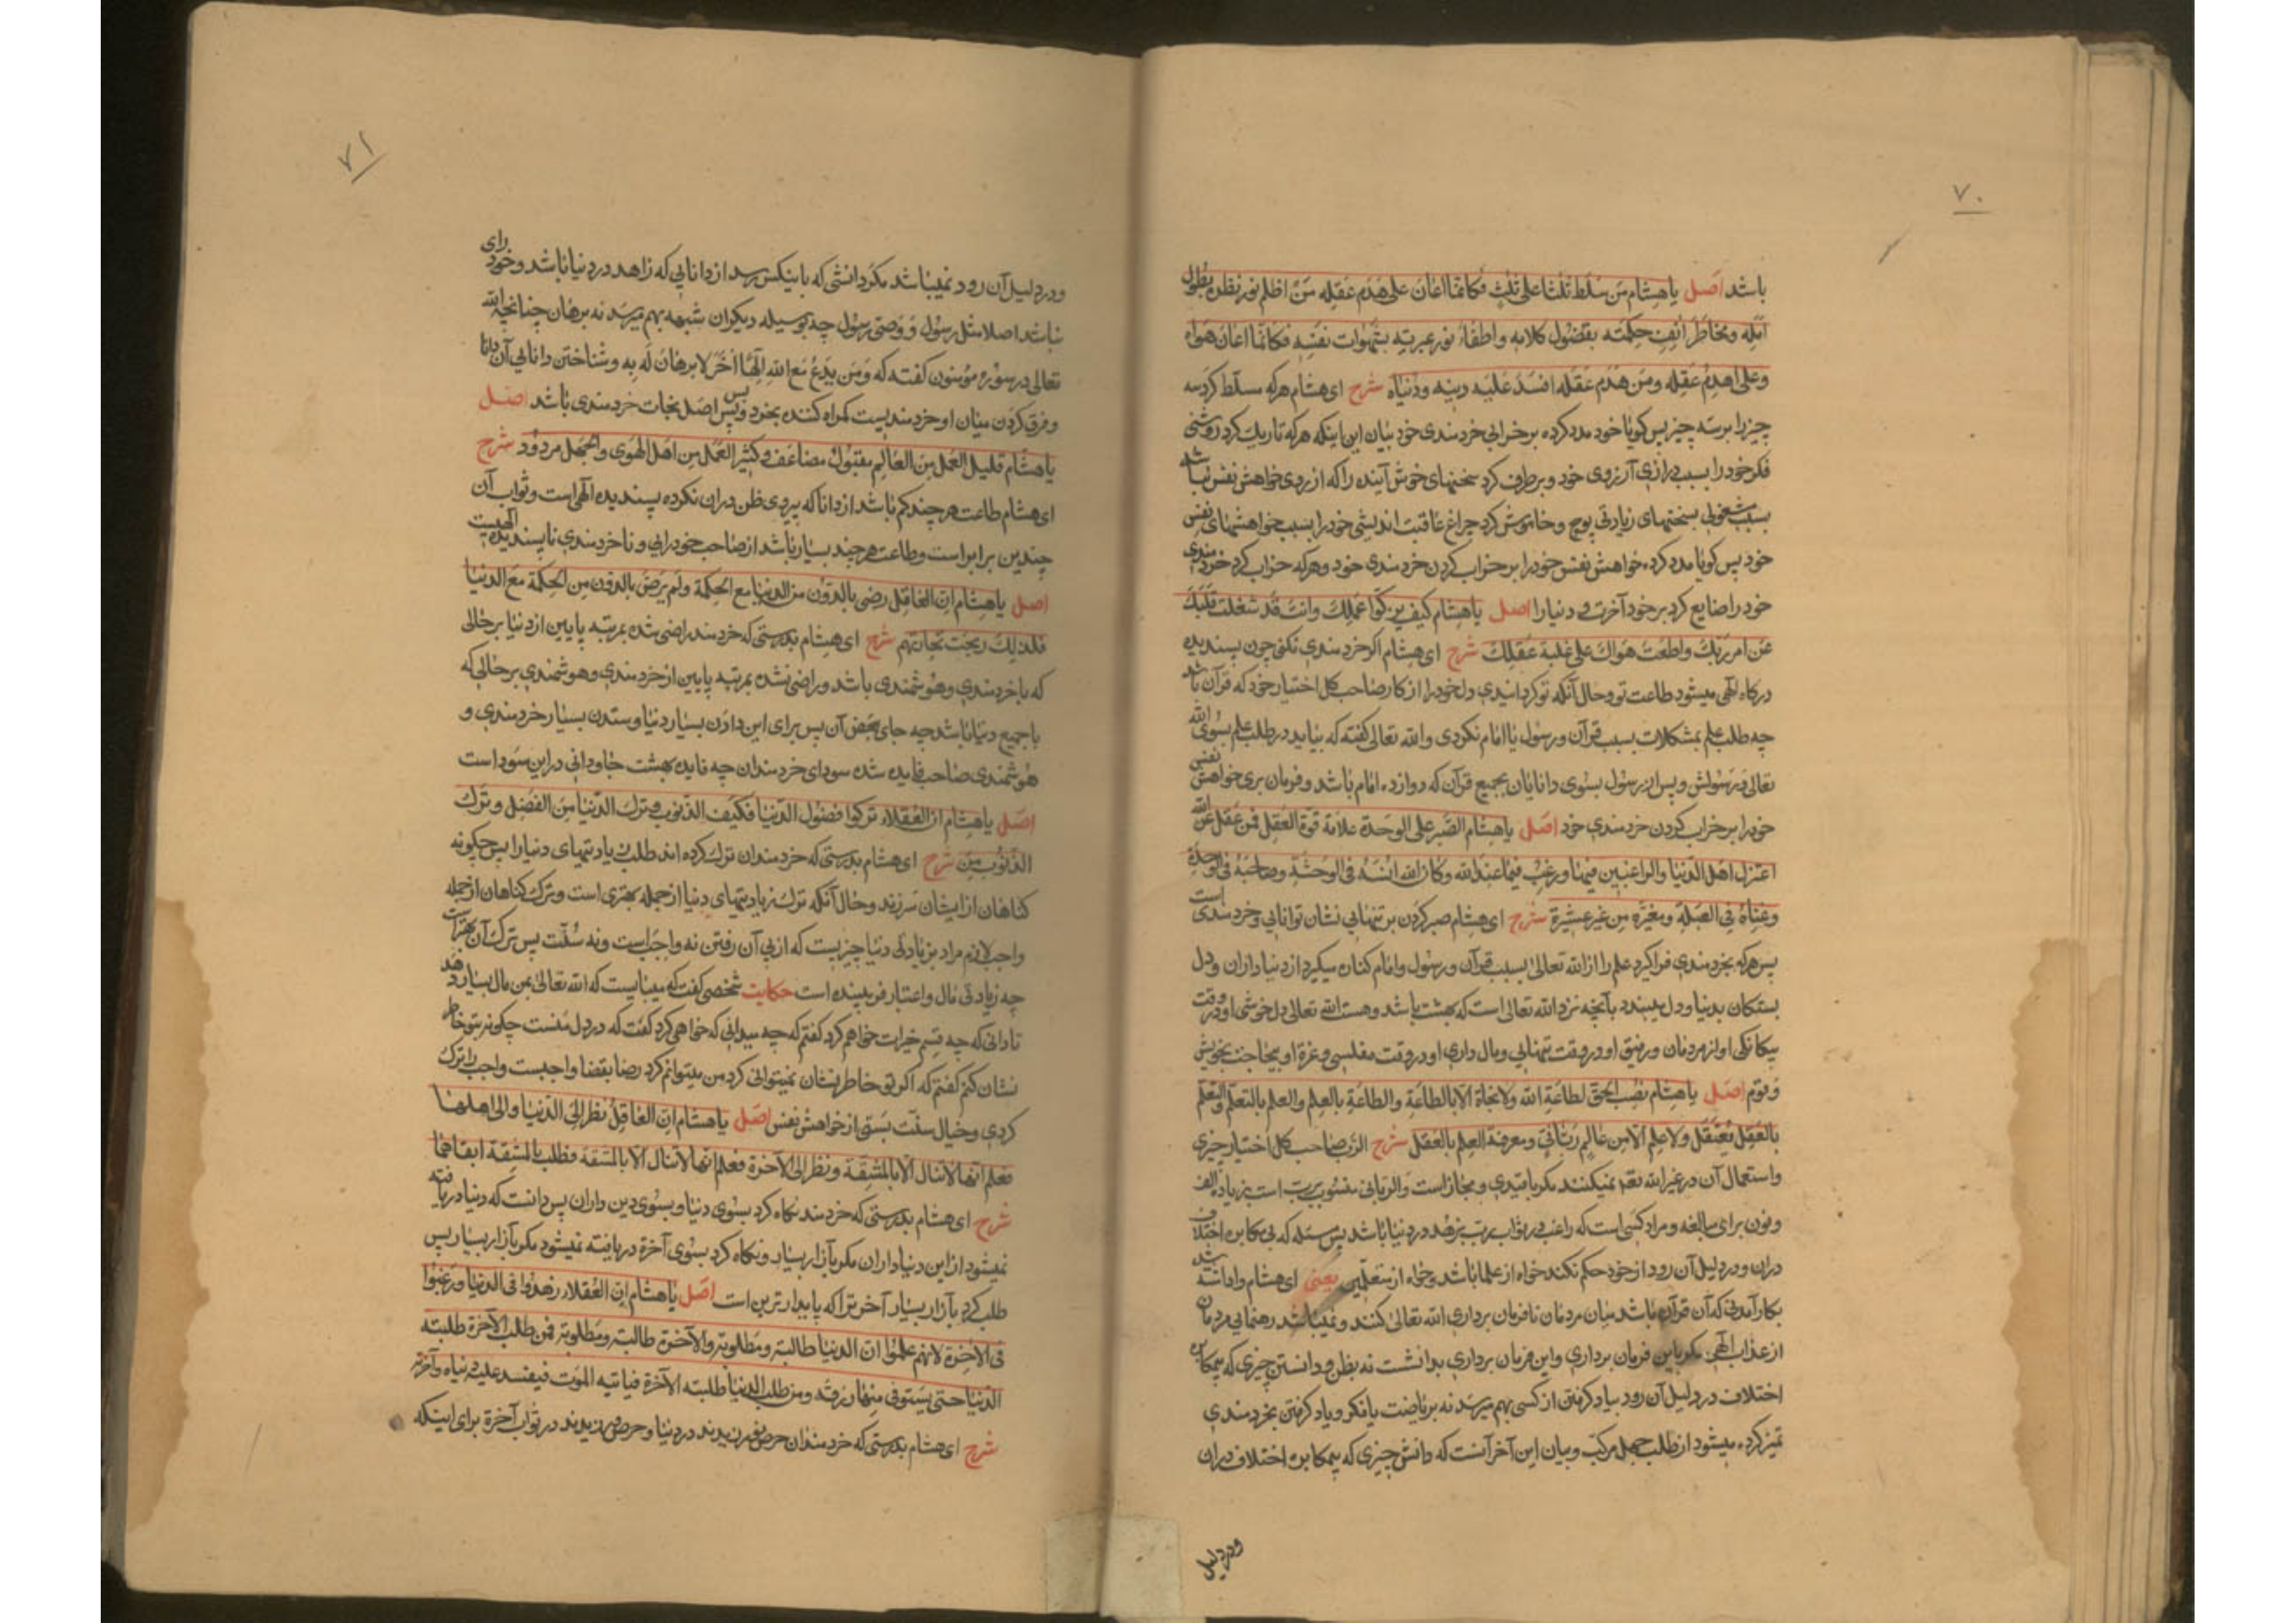 ۷۰
باشد اصل یا هشام من سلط ثلثا علی ثلث فکانما اعان علی هدم عقله من اظلم نور نظره بطول
امله و محا طرائف حکمته بفضول کلامه و اطفاء نور عبرته بشهوات نفسه فکانما اعان هواه
وعلی هدم عقله ومن هدم عقله افسد علیه دینه ودنیاه شرح ای هشام هرکه مسلّط کرد سه
چیز را بر سه چیز پس کویا خود مدد کرده بر خرابی خردمندی خود بیان این اینکه هرکه تاریک کرد روشنی
فکر خود را بسبب درازی آرزوی خود و برطرف کرد سخنهای خوش آینده را که از روی خواهش نفس نباشد
بسبب مشغولی بسخنهای زیادتی پوچ و خاموش کرد چراغ عاقبت اندیشی خود را بسبب خواهشهای نفس
خود پس کویا مدد کرده خواهش نفس خود را بر خراب کردن خردمندی خود و هرکه خراب کرد خردمندی
خود را ضایع کرد بر خود آخرت و دنیا را اصل یا هشام کیف یزکوا عملک وانت قد شغلت قلبک
عن امر ربک واطعت هواک علی غلبة عقلک شرح ای هشام اکر خردمندی نکنی چون پسندیده
درکاه الهی میشود طاعت تو وحال آنکه تو کردانیدی دل خود را از کار صاحب کل اختیار خود که قرآن باشد
چه طلب علم بمشکلات بسبب قرآن و رسول یا امام نکردی والله تعالی کفته که بیایید در طلب علم بسوی الله
تعالی و رسولش و پس از رسول بسوی دانایان بجمیع قرآن که دوازده امام باشد و فرمان بری خواهش نفس
خود را بر خراب کردن خردمندی خود اصل یا هشام الصبر علی الوحدة علامة قوة العقل فمن عقل عن الله
اعتزل اهل الدنیا والراغبین فیها ورغب فیما عند الله وکان الله انسه فی الوحشة وصاحبه فی الوحدة
وغناه فی العیلة ومعزه من غیر عشیرة شرح ای هشام صبر کردن بر تنهایی نشان توانایی و خردمندی است
پس هرکه بخردمندی فرا کیرد علم را از الله تعالی بسبب قرآن و رسول و امام کناره میکیرد از دنیاداران و دل
بستکان بدنیا و دل میبندد بآنچه نزد الله تعالی است که بهشت باشد و هست الله تعالی دل خوشی او در وقت
بیکانکی او از مردمان و رفیق او در وقت تنهایی و مال داری او در وقت مفلسی و عزة او بیحاجت بخویش
وقوم اصل یا هشام نصب الحق لطاعة الله ولا نجاة الا بالطاعة والطاعة بالعلم والعلم بالتعلم والتعلم
بالعقل یعتقل ولا علم الا من عالم ربانی ومعرفة العلم بالعقل شرح الرب صاحب کل اختیار چیزی
واستعمال آن در غیر الله تعم نمیکنند مکر با قیدی و مجاز است والربانی منسوب برب است بزیاده الف
ونون برای مبالغه و مراد کسی است که راغب در ثواب رب بزهد در دنیا باشد پس مسئله که بی مکابره اختلاف
دران و در دلیل آن رود از خود حکم نکند خواه از علما باشد و خواه از متعلّمین یعنی ای هشام واداشته شد
بکار آمدنی که آن قرآن باشد میان مردمان تا فرمان برداری الله تعالی کنند و نمیباشد رهنمایی مردمان
از عذاب الهی مکر باین فرمان برداری واین فرمان برداری بدانشت نه بظن و دانستن چیزی که بیمکابره
اختلاف در دلیل آن رود بیاد کرفتن از کسی بهم میرسد نه بریاضت یا فکر و یاد کرفتن بخردمندی
تمیز کرده میشود از طلب جهل مرکب و بیان این آخر آنست که دانش چیزی که بیمکابره اختلاف دران
ودر دلیل
۷۱
ودر دلیل آن رود نمیباشد مکر دانشی که باینکس رسد از دانایی که زاهد در دنیا باشد و خود رای
نباشد اصلا مثل رسول و وصی رسول چه بوسیله دیکران شبهه بهم میرسد نه برهان چنانچه الله
تعالی در سوره مؤمنون کفته که ومن یدع مع الله الٰها آخر لا برهان له به وشناختن دانایی آن دانا
و فرق کردن میان او خردمندیست کمراه کننده بخرد و پس اصل نجات خردمندی باشد اصل
یا هشام قلیل العمل من العالم مقبول مضاعف وکثیر العمل من اهل الهوی والجهل مردود شرح
ای هشام طاعت هر چند کم باشد از دانا که پیروی ظن دران نکرده پسندیده الهی است و ثواب آن
چندین برابر است و طاعت هر چند بسیار باشد از صاحب خود رایی و ناخردمندی ناپسندیده الهیست
اصل یا هشام ان العاقل رضی بالدون من الدنیا مع الحکمة ولم یرض بالدون من الحکمة مع الدنیا
فلذلک ربحت تجارتهم شرح ای هشام بدرستی که خردمند راضی شده بمرتبه پایین از دنیا بر حالی
که باخردمندی و هوشمندی باشد و راضی نشده بمرتبه پایین از خردمندی و هوشمندی بر حالی که
با جمیع دنیا باشد چه جای بعض آن پس برای این دادن بسیار دنیا و ستدن بسیار خردمندی و
هوشمندی صاحب فایده شده سودای خردمندان چه فایده بهشت جاودانی در این سود است
اصل یا هشام ان العقلاء ترکوا فضول الدنیا فکیف الذنوب وترک الدنیا من الفضل وترک
الذنوب من شرح ای هشام بدرستی که خردمندان ترک کرده اند طلب زیادتیهای دنیا را پس چکونه
کناهان از ایشان سر زند و حال آنکه ترک زیادتیهای دنیا از جمله بهتری است و ترک کناهان از جمله
واجب لازم مراد بزیادتی دنیا چیزیست که از پی آن رفتن نه واجب است و نه سنّت پس ترک آن بهتر است
چه زیادتی مال و اعتبار فریبنده است حکایت شخصی کفت که میبایست که الله تعالی بمن مال بسیار دهد
تا دانی که چه قسم خیرات خواهم کرد کفتم که چه میدانی که خواهی کرد کفت که در دل منست چکونه بتو خاطر
نشان کنم کفتم که اکر تو خاطر نشان نمیتوانی کرد من میتوانم کرد رضا بقضا واجبست واجب را ترک
کردی و خیال سنّت بستی از خواهش نفس اصل یا هشام ان العاقل نظر الی الدنیا والی اهلها
فعلم انها لا تنال الا بالمشقة ونظر الی الآخرة فعلم انها لا تنال الا بالمشقة فطلب بالمشقة ابقاهما
شرح ای هشام بدرستی که خردمند نکاه کرد بسوی دنیا و بسوی دین داران پس دانست که دنیا دریافته
نمیشود از این دنیاداران مکر بآزار بسیار و نکاه کرد بسوی آخرة دریافته نمیشود مکر بآزار بسیار پس
طلب کرد بآزار بسیار آخرت را که پایدارترین است اصل یا هشام ان العقلاء زهدوا فی الدنیا ورغبوا
فی الآخرة لانهم علموا ان الدنیا طالبة ومطلوبة والآخرة طالبة ومطلوبة فمن طلب الآخرة طلبته
الدنیا حتی یستوفی منها رزقه ومن طلب الدنیا طلبته الآخرة فیاتیه الموت فیفسد علیه دنیاه وآخرته
شرح ای هشام بدرستی که خردمندان حرص نورزیدند در دنیا و حرص ورزیدند در ثواب آخرة برای اینکه